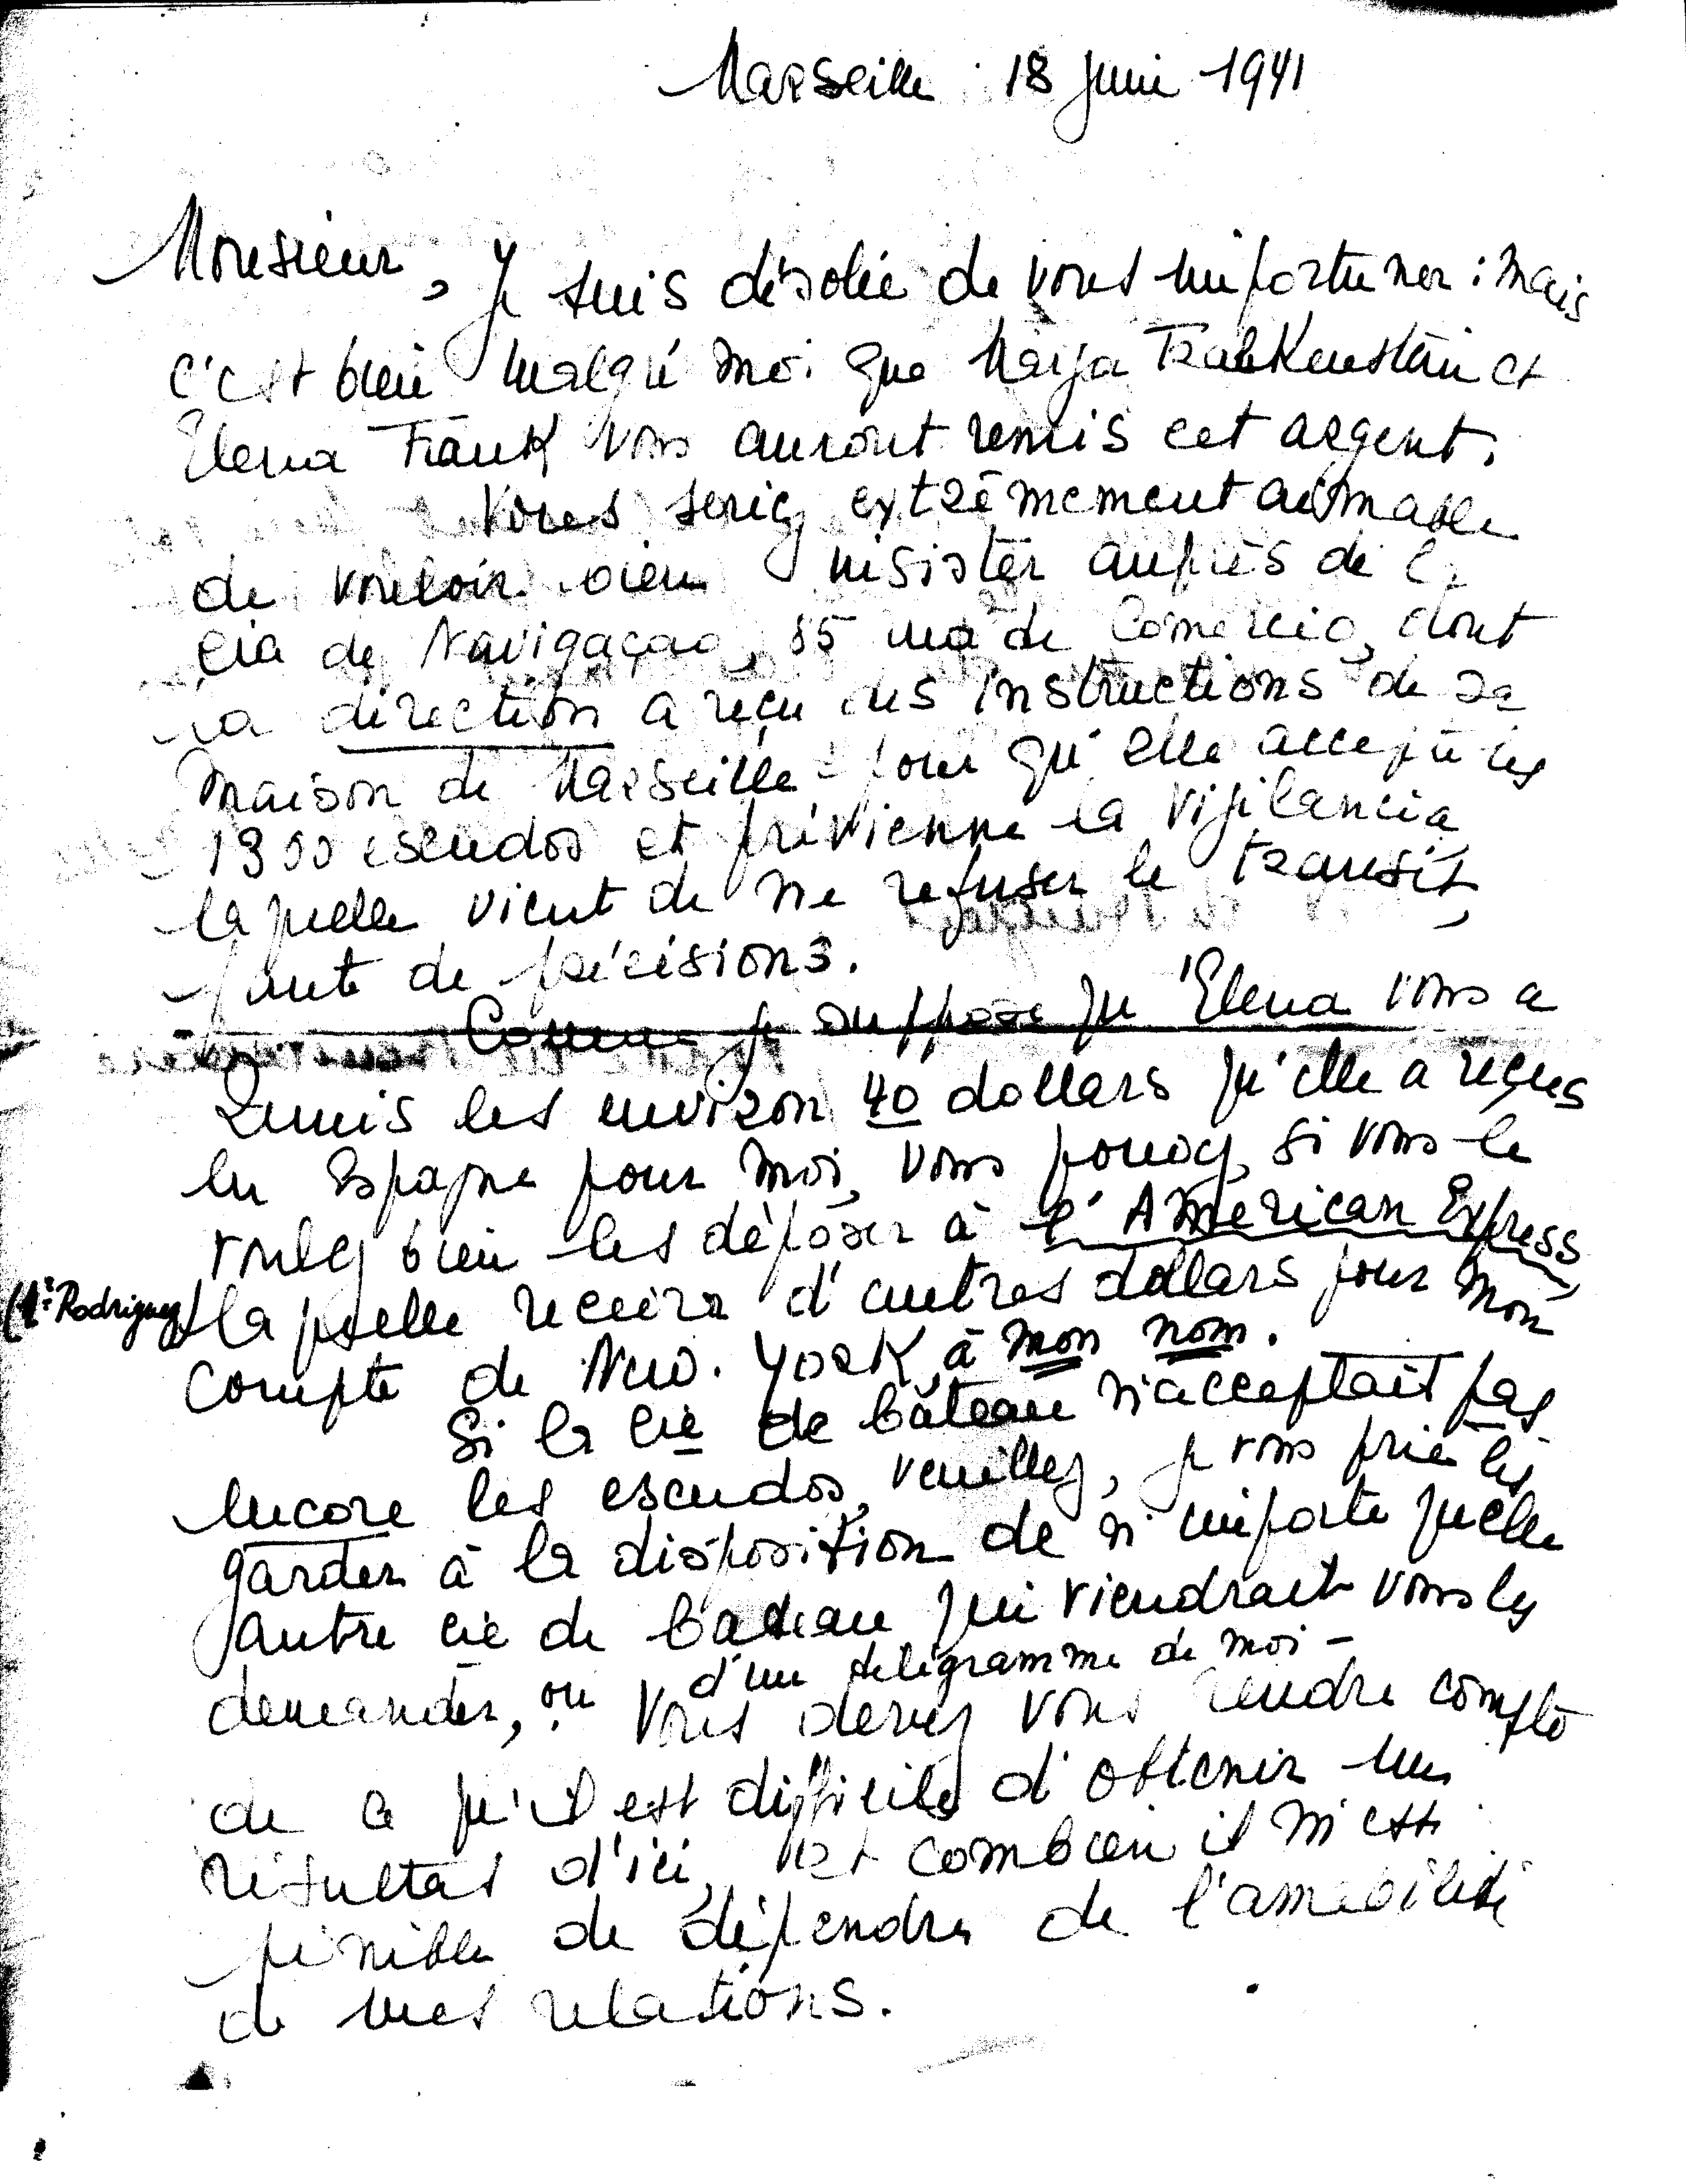 Marseille 18 juin 1941
Monsieur, Je suis désolée de vous importuner : mais
c'est bien malgré moi que Marja et
Elena Frank vous auront remis cet argent.
Vous seriez extrêmement aimable
de vouloir bien insister auprès de la
Cia de Navigaçao, 85 rua de Comercio, dont
la direction a reçu des instructions de sa
maison de Marseille pour qu'elle accepte les
1300 escudos et prévienne la Vigilancia
laquelle vient de me refuser le transit,
faute de précisions.
Comme je suppose qu'Elena vous a
remis les environ 40 dollars qu'elle a reçues
en Espagne pour moi, vous pouvez, si vous le
voulez bien les déposer à l'American Express
(Mr Rodriguez) laquelle recevra d'autres dollars pour mon
compte de New. York, à mon nom.
Si la Cie de bâteau n'acceptait pas
encore les escudos, veuillez, je vous prie les
garder à la disposition de n'importe quelle
autre cie de bateau qui viendrait vous les
d'un télégramme de moi -
demander, ou Vous devez vous rendre compte
de ce qu'il est difficile d'obtenir un
résultat d'ici, et combien il m'est
pénible de dépendre de l'amabilité
de mes relations.